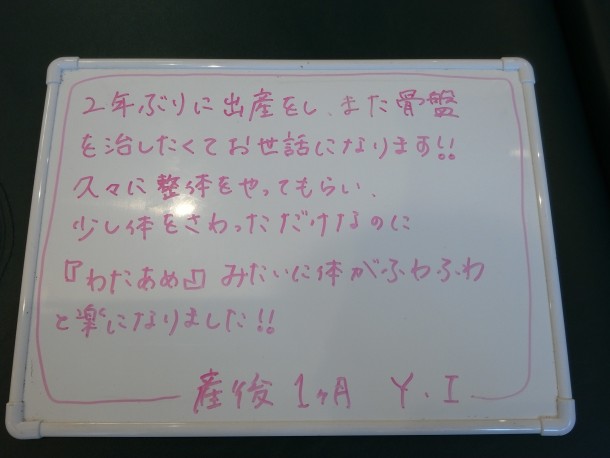 ２年ぶりに出産をし、また骨盤
を治したくてお世話になります!!
久々に整体をやってもらい、
少し体をさわっただけなのに
『わたあめ』みたいに体がふわふわ
と楽になりました!!
産後1ヶ月 Y.I